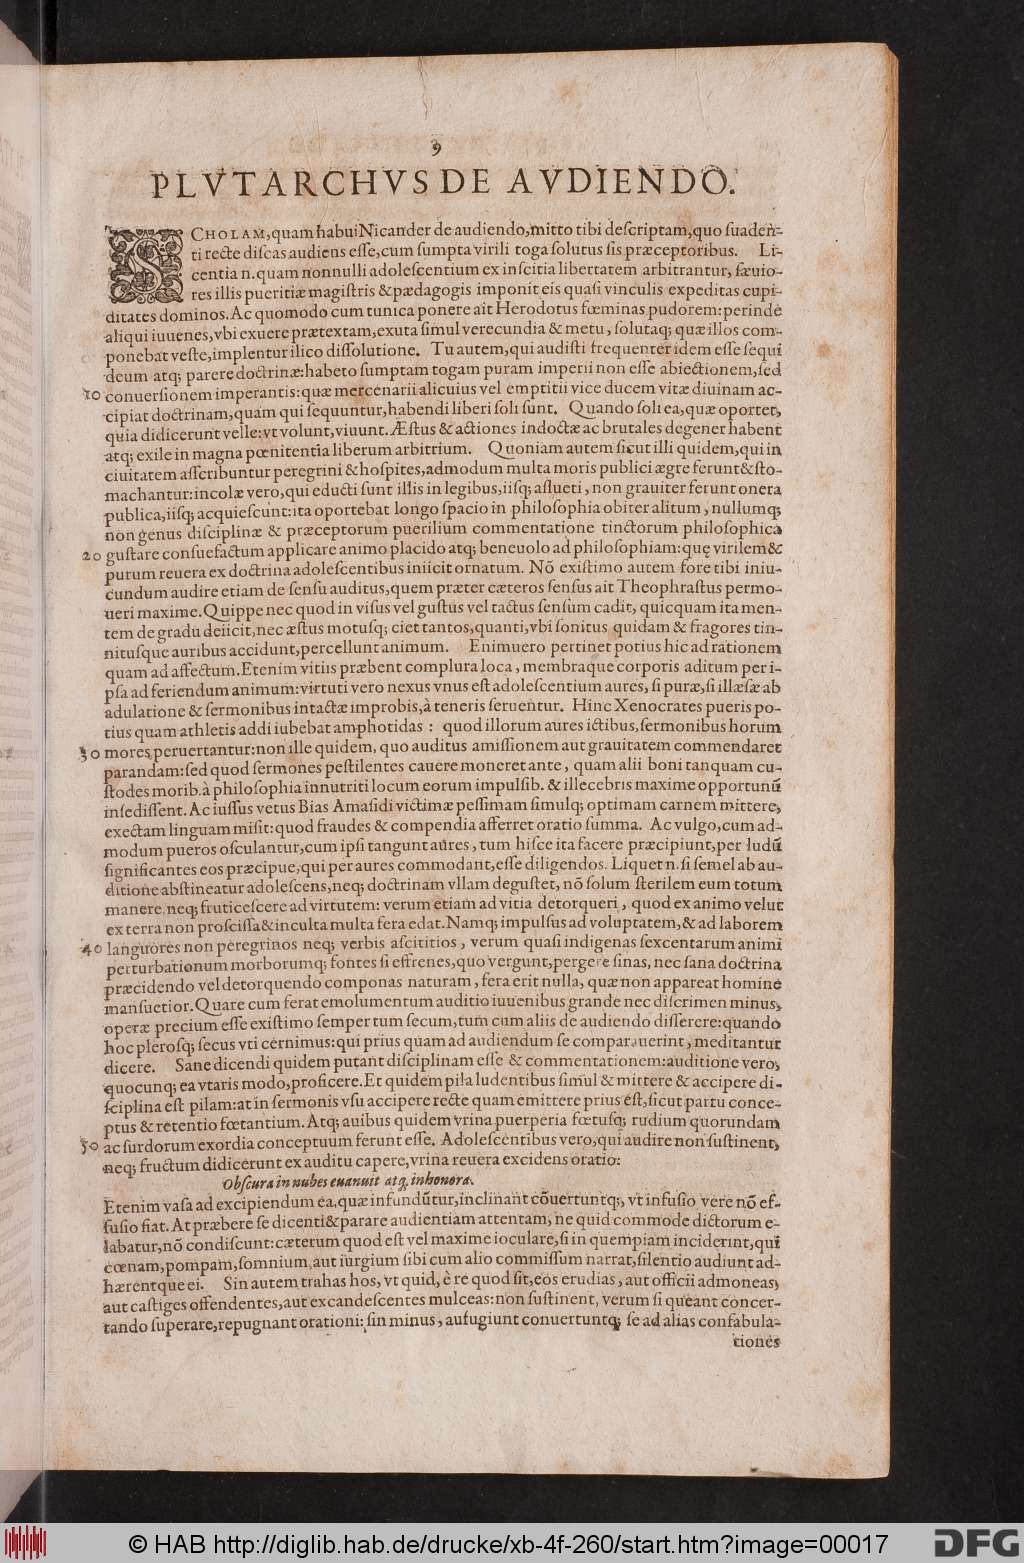 9
PLVTARCHVS DE AVDIENDO.
SCHOLAM, quam habui Nicander de audiendo, mitto tibi deſcriptam, quo ſuaden-
ti recte diſcas audiens eſſe, cum ſumpta virili toga ſolutus ſis præceptoribus. Li-
centia n. quam nonnulli adoleſcentium ex inſcitia libertatem arbitrantur, ſæuio-
res illis pueritiæ magiſtris & pædagogis imponit eis quaſi vinculis expeditas cupi-
ditates dominos. Ac quomodo cum tunica ponere ait Herodotus fœminas pudorem: perinde
aliqui iuuenes, vbi exuere prætextam, exuta ſimul verecundia & metu, ſolutaq; quæ illos com-
ponebat veſte, implentur ilico diſſolutione. Tu autem, qui audiſti frequenter idem eſſe ſequi
deum atq; parere doctrinæ: habeto ſumptam togam puram imperii non eſſe abiectionem, ſed
10 conuerſionem imperantis: quæ mercenarii alicuius vel emptitii vice ducem vitæ diuinam ac-
cipiat doctrinam, quam qui ſequuntur, habendi liberi ſoli ſunt. Quando ſoli ea, quæ oportet,
quia didicerunt velle: vt volunt, viuunt. Æſtus & actiones indoctæ ac brutales degener habent
atq; exile in magna pœnitentia liberum arbitrium. Quoniam autem ſicut illi quidem, qui in
ciuitatem aſſcribuntur peregrini & hoſpites, admodum multa moris publici ægre ferunt & ſto-
machantur: incolæ vero, qui educti ſunt illis in legibus, iiſq; aſſueti, non grauiter ferunt onera
publica, iiſq; acquieſcunt: ita oportebat longo ſpacio in philoſophia obiter alitum, nullumq;
non genus diſciplinæ & præceptorum puerilium commentatione tinctorum philoſophica
20 guſtare conſuefactum applicare animo placido atq; beneuolo ad philoſophiam: quę virilem &
purum reuera ex doctrina adoleſcentibus iniicit ornatum. Nõ exiſtimo autem fore tibi iniu-
cundum audire etiam de ſenſu auditus, quem præter cæteros ſenſus ait Theophraſtus permo-
ueri maxime. Quippe nec quod in viſus vel guſtus vel tactus ſenſum cadit, quicquam ita men-
tem de gradu deiicit, nec æſtus motuſq; ciet tantos, quanti, vbi ſonitus quidam & fragores tin-
nituſque auribus accidunt, percellunt animum. Enimuero pertinet potius hic ad rationem
quam ad affectum. Etenim vitiis præbent complura loca, membraque corporis aditum per i-
pſa ad feriendum animum: virtuti vero nexus vnus eſt adoleſcentium aures, ſi puræ, ſi illæſæ ab
adulatione & ſermonibus intactæ improbis, à teneris ſeruentur. Hinc Xenocrates pueris po-
tius quam athletis addi iubebat amphotidas : quod illorum aures ictibus, ſermonibus horum
30 mores peruertantur: non ille quidem, quo auditus amiſſionem aut grauitatem commendaret
parandam: ſed quod ſermones peſtilentes cauere moneret ante, quam alii boni tanquam cu-
ſtodes morib. à philoſophia innutriti locum eorum impulſib. & illecebris maxime opportunũ
inſediſſent. Ac iuſſus vetus Bias Amaſidi victimæ peſſimam ſimulq; optimam carnem mittere,
exectam linguam miſit: quod fraudes & compendia afferret oratio ſumma. Ac vulgo, cum ad-
modum pueros oſculantur, cum ipſi tangunt aures, tum hiſce ita facere præcipiunt, per ludũ
ſignificantes eos præcipue, qui per aures commodant, eſſe diligendos. Liquet n. ſi ſemel ab au-
ditione abſtineatur adoleſcens, neq; doctrinam vllam deguſtet, nõ ſolum ſterilem eum totum
manere, neq; fruticeſcere ad virtutem: verum etiam ad vitia detorqueri , quod ex animo velut
ex terra non proſciſſa & inculta multa fera edat. Namq; impulſus ad voluptatem, & ad laborem
40 languores non peregrinos neq; verbis aſcititios , verum quaſi indigenas ſexcentarum animi
perturbationum morborumq; fontes ſi effrenes, quo vergunt, pergere ſinas, nec ſana doctrina
præcidendo vel detorquendo componas naturam, fera erit nulla, quæ non appareat homine
manſuetior. Quare cum ferat emolumentum auditio iuuenibus grande nec diſcrimen minus,
operæ precium eſſe exiſtimo ſemper tum ſecum, tum cum aliis de audiendo diſſerere: quando
hoc pleroſq; ſecus vti cernimus: qui prius quam ad audiendum ſe comparauerint, meditantur
dicere. Sane dicendi quidem putant diſciplinam eſſe & commentationem: auditione vero,
quocunq; ea vtaris modo, proficere. Et quidem pila ludentibus ſimul & mittere & accipere di-
ſciplina eſt pilam: at in ſermonis vſu accipere recte quam emittere prius eſt, ſicut partu conce-
ptus & retentio fœtantium. Atq; auibus quidem vrina puerperia fœtuſq; rudium quorundam
50 ac ſurdorum exordia conceptuum ferunt eſſe. Adoleſcentibus vero, qui audire non ſuſtinent,
neq; fructum didicerunt ex auditu capere, vrina reuera excidens oratio:
Obſcura in nubes euanuit atq, inhonora.
Etenim vaſa ad excipiendum ea, quæ infundũtur, inclinant cõuertuntq;, vt infuſio vere nõ ef-
fuſio fiat. At præbere ſe dicenti & parare audientiam attentam, ne quid commode dictorum e-
labatur, nõ condiſcunt: cæterum quod eſt vel maxime ioculare, ſi in quempiam inciderint, qui
cœnam, pompam, ſomnium, aut iurgium ſibi cum alio commiſſum narrat, ſilentio audiunt ad-
hærentque ei. Sin autem trahas hos, vt quid, è re quod ſit, eos erudias, aut officii admoneas,
aut caſtiges offendentes, aut excandeſcentes mulceas: non ſuſtinent, verum ſi queant concer-
tando ſuperare, repugnant orationi: ſin minus, aufugiunt conuertuntq; ſe ad alias confabula-
tiones
© HAB http://diglib.hab.de/drucke/xb-4f-260/start.htm?image=00017
DFG